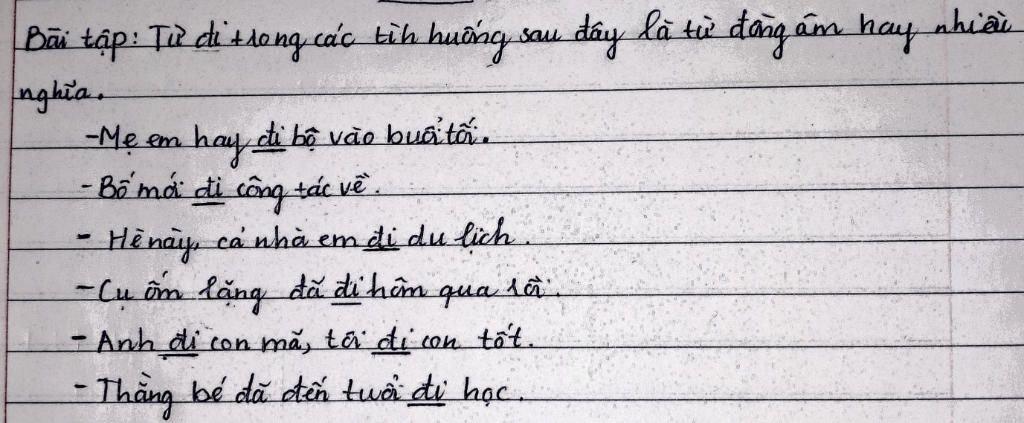 Bài tập: Từ đi trong các tình huống sau đây là từ đồng âm hay nhiều
nghĩa.
- Mẹ em hay đi bộ vào buổi tối.
- Bố mới đi công tác về.
- Hè này, cả nhà em đi du lịch.
- Cụ ốm nặng đã đi hôm qua rồi.
- Anh đi con mã, tôi đi con tốt.
- Thằng bé đã đến tuổi đi học.